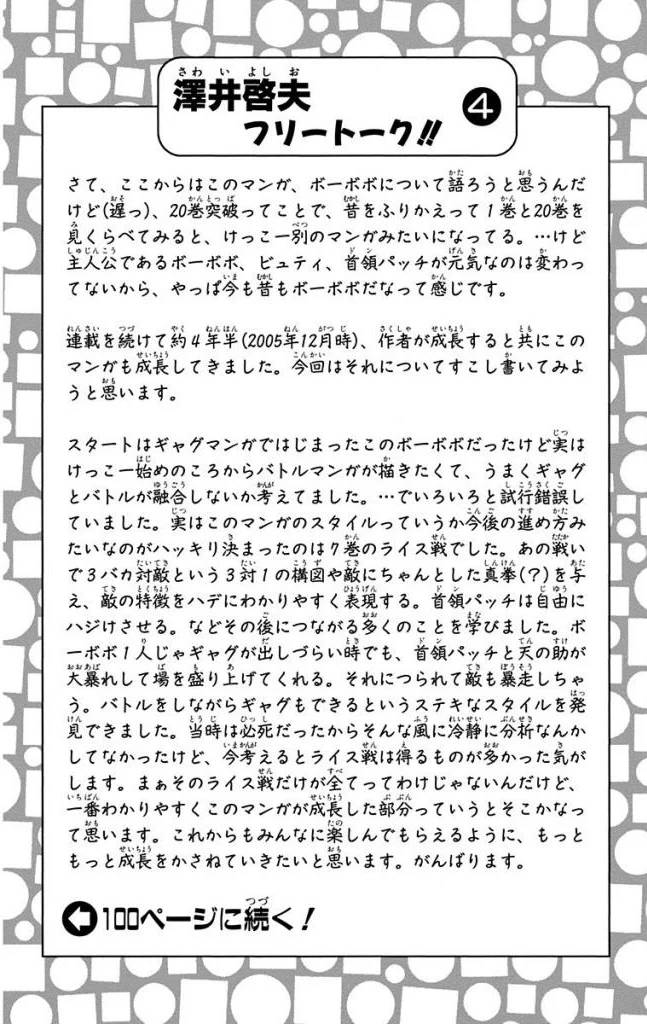 澤井啓夫
フリートーク!! ❹
さて、ここからはこのマンガ、ボーボボについて語ろうと思うんだ
けど(遅っ)、20巻突破ってことで、昔をふりかえって1巻と20巻を
見くらべてみると、けっこー別のマンガみたいになってる。…けど
主人公であるボーボボ、ビュティ、首領パッチが元気なのは変わっ
てないから、やっぱ今も昔もボーボボだなって感じです。
連載を続けて約4年半(2005年12月時)、作者が成長すると共にこの
マンガも成長してきました。今回はそれについてすこし書いてみよ
うと思います。
スタートはギャグマンガではじまったこのボーボボだったけど実は
けっこー始めのころからバトルマンガが描きたくて、うまくギャグ
とバトルが融合しないか考えてました。…でいろいろと試行錯誤し
ていました。実はこのマンガのスタイルっていうか今後の進め方み
たいなのがハッキリ決まったのは7巻のライス戦でした。あの戦い
で3バカ対敵という3対1の構図や敵にちゃんとした真拳(?)を与
え、敵の特徴をハデにわかりやすく表現する。首領パッチは自由に
ハジけさせる。などその後につながる多くのことを学びました。ボ
ーボボ1人じゃギャグが出しづらい時でも、首領パッチと天の助が
大暴れして場を盛り上げてくれる。それにつられて敵も暴走しちゃ
う。バトルをしながらギャグもできるというステキなスタイルを発
見できました。当時は必死だったからそんな風に冷静に分析なんか
してなかったけど、今考えるとライス戦は得るものが多かった気が
します。まぁそのライス戦だけが全てってわけじゃないんだけど、
一番わかりやすくこのマンガが成長した部分っていうとそこかなっ
て思います。これからもみんなに楽しんでもらえるように、もっと
もっと成長をかさねていきたいと思います。がんばります。
100ページに続く!